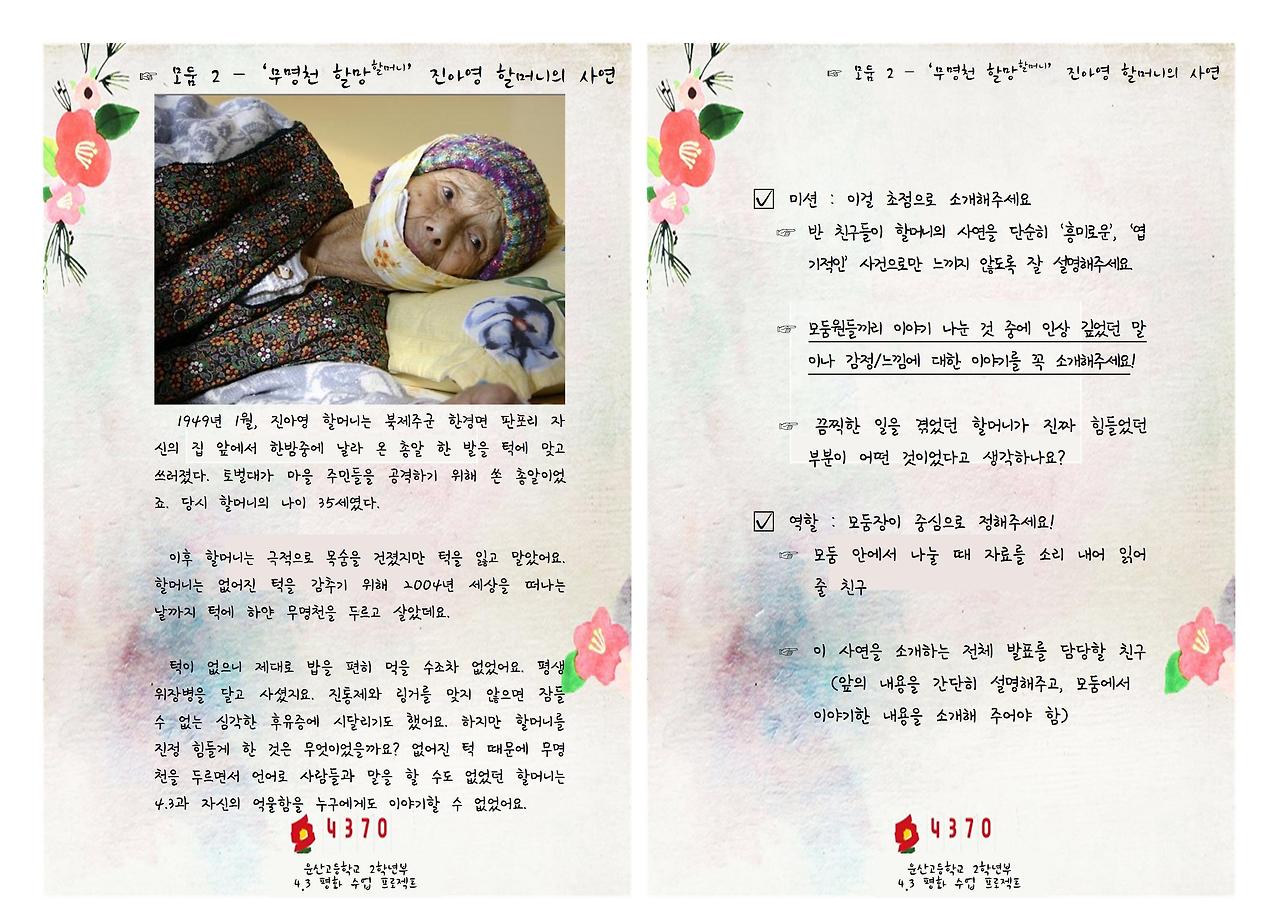 ☞ 모둠 2 - ‘무명천 할망할머니’ 진아영 할머니의 사연
1949년 1월, 진아영 할머니는 북제주군 한경면 판포리 자
신의 집 앞에서 한밤중에 날라 온 총알 한 발을 턱에 맞고
쓰러졌다. 토벌대가 마을 주민들을 공격하기 위해 쏜 총알이었
죠. 당시 할머니의 나이 35세였다.
이후 할머니는 극적으로 목숨을 건졌지만 턱을 잃고 말았어요.
할머니는 없어진 턱을 감추기 위해 2004년 세상을 떠나는
날까지 턱에 하얀 무명천을 두르고 살았데요.
턱이 없으니 제대로 밥을 편히 먹을 수조차 없었어요. 평생
위장병을 달고 사셨지요. 진통제와 링거를 맞지 않으면 잠들
수 없는 심각한 후유증에 시달리기도 했어요. 하지만 할머니를
진정 힘들게 한 것은 무엇이었을까요? 없어진 턱 때문에 무명
천을 두르면서 언어로 사람들과 말을 할 수도 없었던 할머니는
4.3과 자신의 억울함을 누구에게도 이야기할 수 없었어요.
4370
운산고등학교 2학년부
4.3 평화 수업 프로젝트
☞ 모둠 2 - ‘무명천 할망할머니’ 진아영 할머니의 사연
☑ 미션 : 이걸 초점으로 소개해주세요
☞ 반 친구들이 할머니의 사연을 단순히 ‘흥미로운’, ‘엽
기적인’ 사건으로만 느끼지 않도록 잘 설명해주세요
☞ 모둠원들끼리 이야기 나눈 것 중에 인상 깊었던 말
이나 감정/느낌에 대한 이야기를 꼭 소개해주세요!
☞ 끔찍한 일을 겪었던 할머니가 진짜 힘들었던
부분이 어떤 것이었다고 생각하나요?
☑ 역할 : 모둠장이 중심으로 정해주세요!
☞ 모둠 안에서 나눌 때 자료를 소리 내어 읽어
줄 친구
☞ 이 사연을 소개하는 전체 발표를 담당할 친구
(앞의 내용을 간단히 설명해주고, 모둠에서
이야기한 내용을 소개해 주어야 함)
4370
운산고등학교 2학년부
4.3 평화 수업 프로젝트